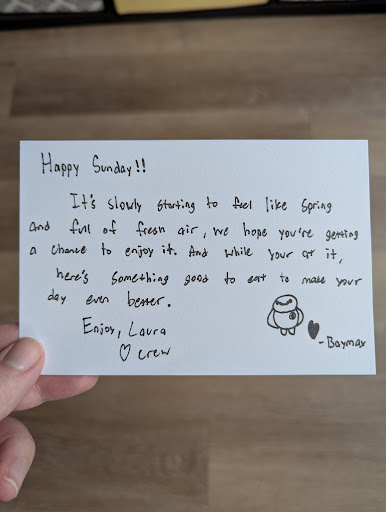 Happy Sunday!!
It's slowly starting to feel like Spring
And full of fresh air, we hope you're getting
a chance to enjoy it. And while your at it,
here's something good to eat to make your
day even better.
Enjoy, Laura
♡ crew
- Baymax